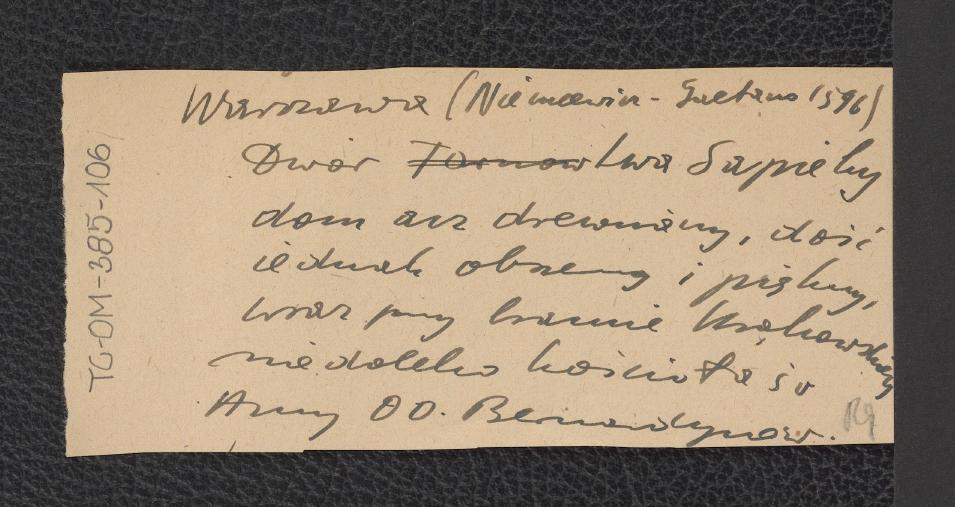 Warszawa (Niemcewicz - Gaetano 1596)
Dwór Tarnow Lwa Sapiehy
dom acz drewniany, dość
iednak obszerny i piękny,
wraz przy bramie Krakowskiey
niedaleko kościoła św
Anny OO. Bernardynów.
R9
TG-OM-385-106